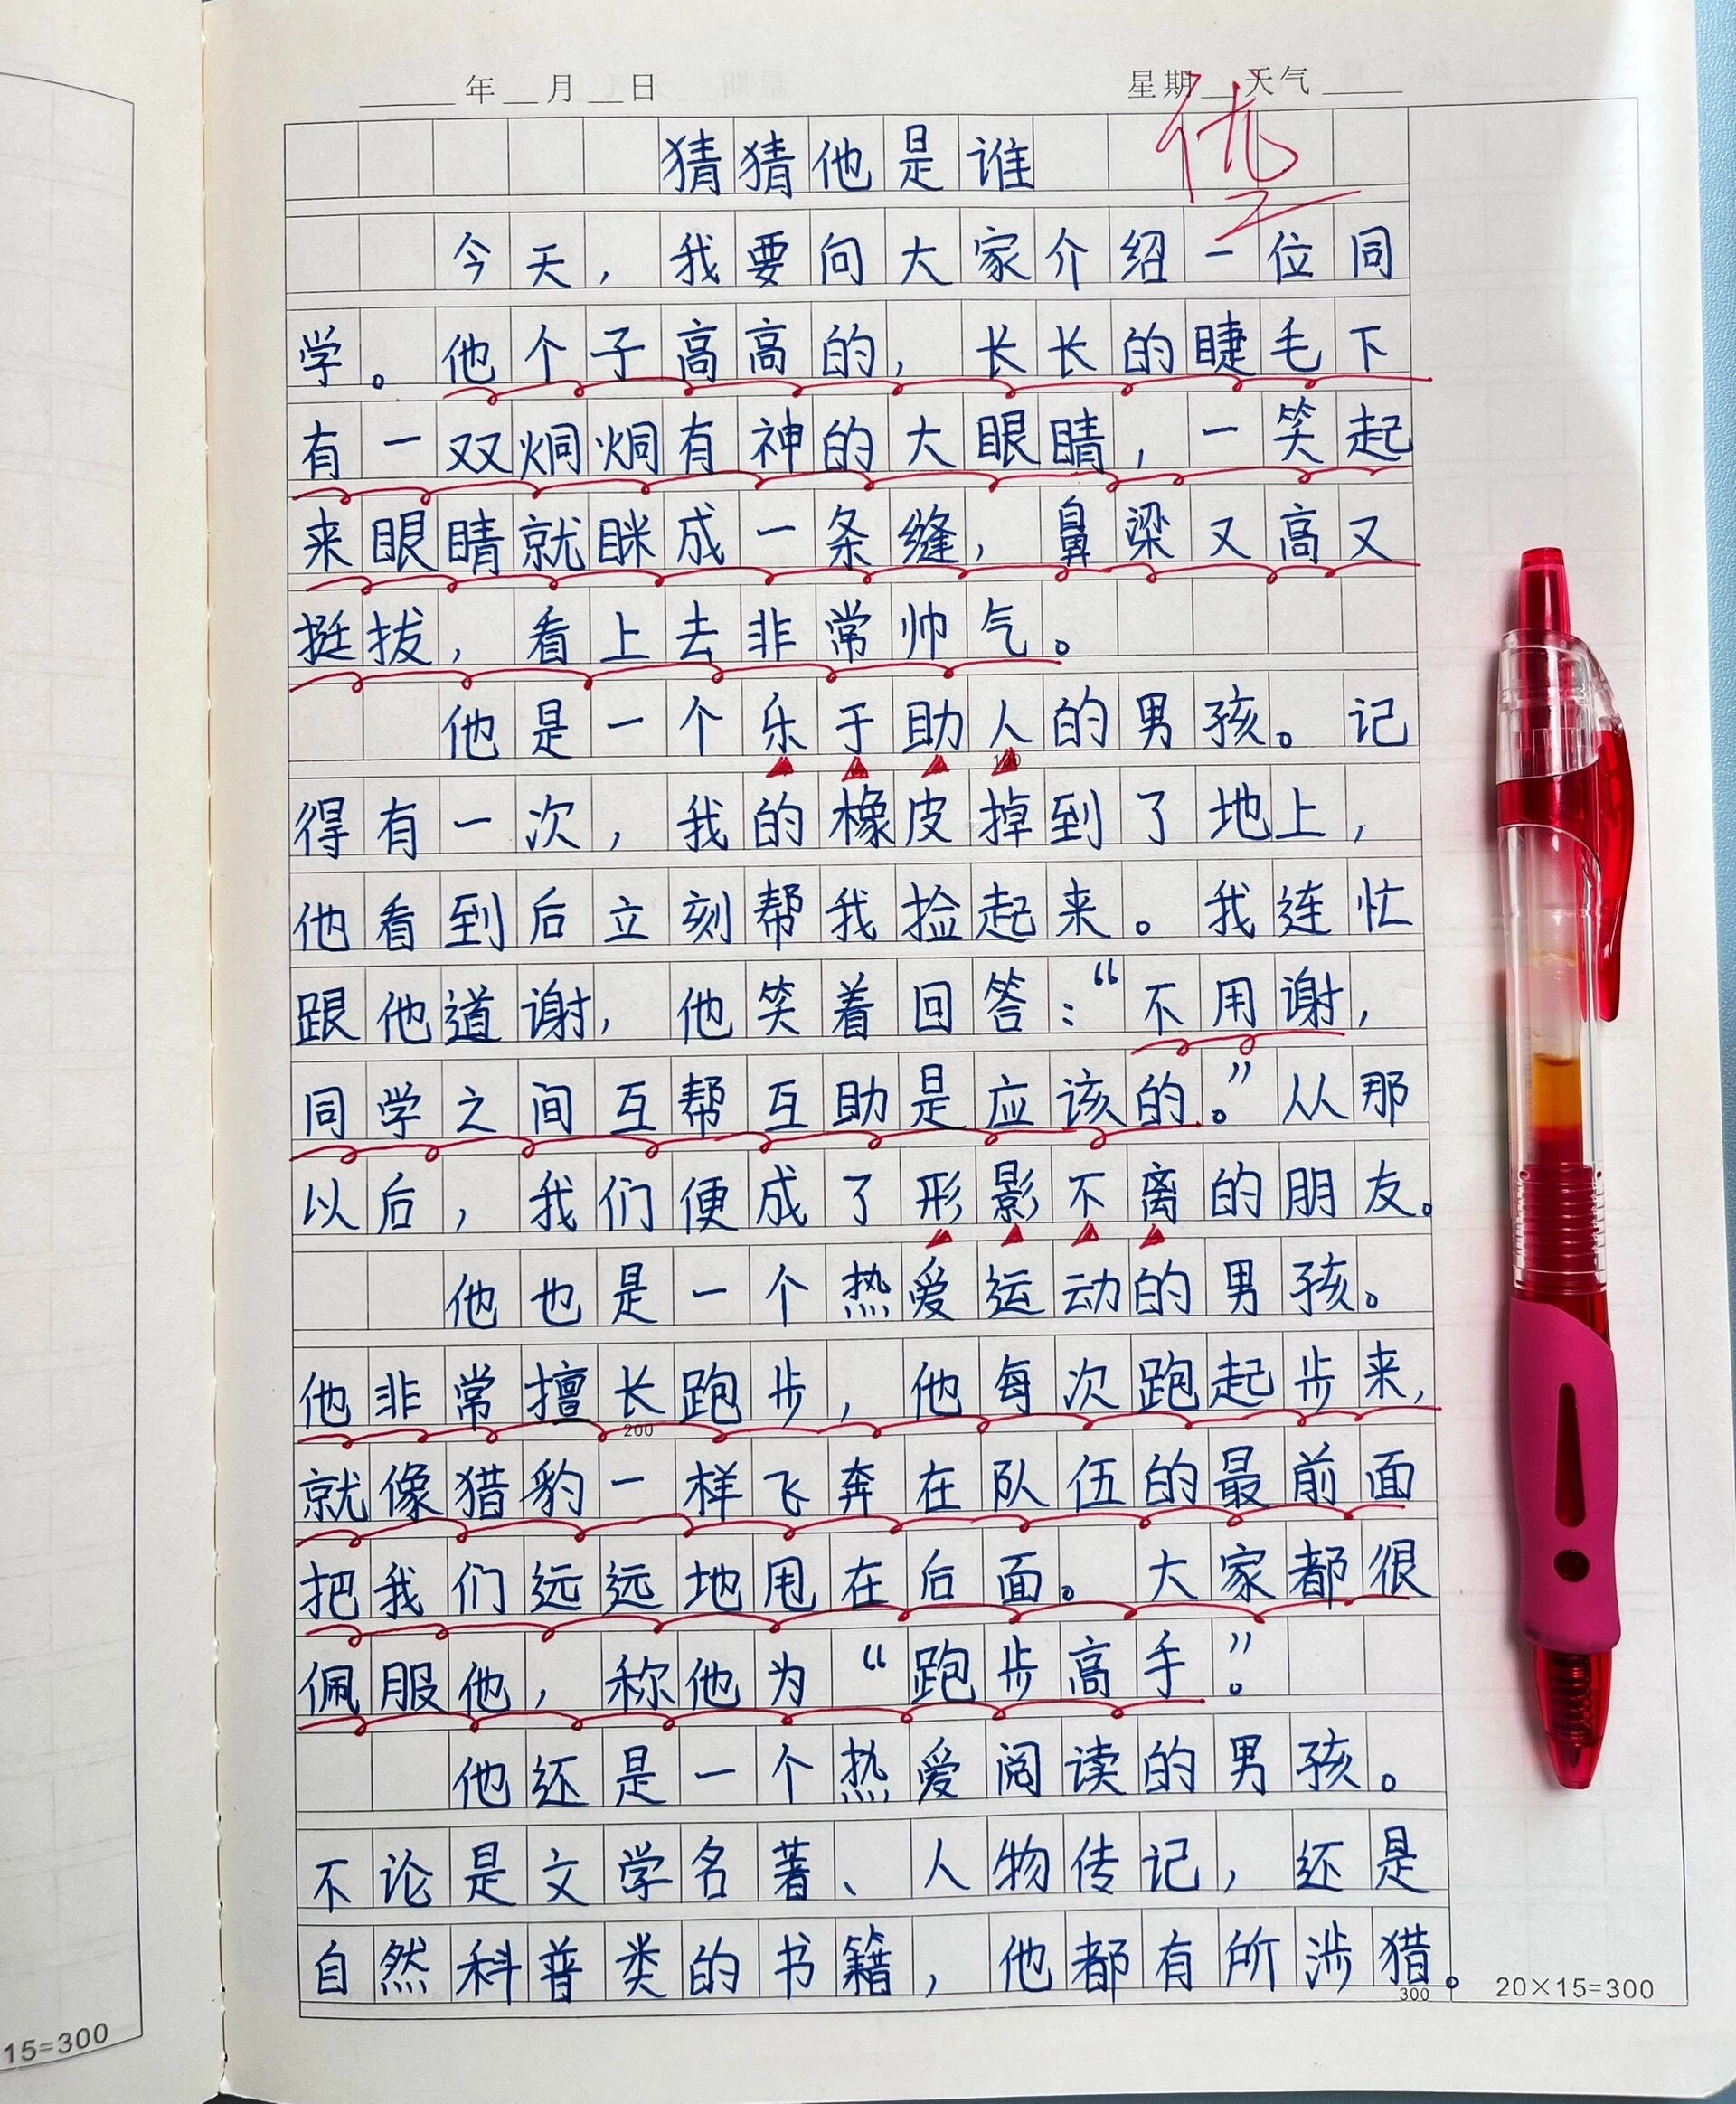 年 月 日 星期 天气
优
猜猜他是谁
今天，我要向大家介绍一位同
学。他个子高高的，长长的睫毛下
有一双炯炯有神的大眼睛，一笑起
来眼睛就眯成一条缝，鼻梁又高又
挺拔，看上去非常帅气。
他是一个乐于助人的男孩。记
得有一次，我的橡皮掉到了地上，
他看到后立刻帮我捡起来。我连忙
跟他道谢，他笑着回答：“不用谢，
同学之间互帮互助是应该的。”从那
以后，我们便成了形影不离的朋友。
他也是一个热爱运动的男孩。
他非常擅长跑步，他每次跑起步来，
200
就像猎豹一样飞奔在队伍的最前面
把我们远远地甩在后面。大家都很
佩服他，称他为“跑步高手”。
他还是一个热爱阅读的男孩。
不论是文学名著、人物传记，还是
自然科普类的书籍，他都有所涉猎。
300
20×15=300
15=300